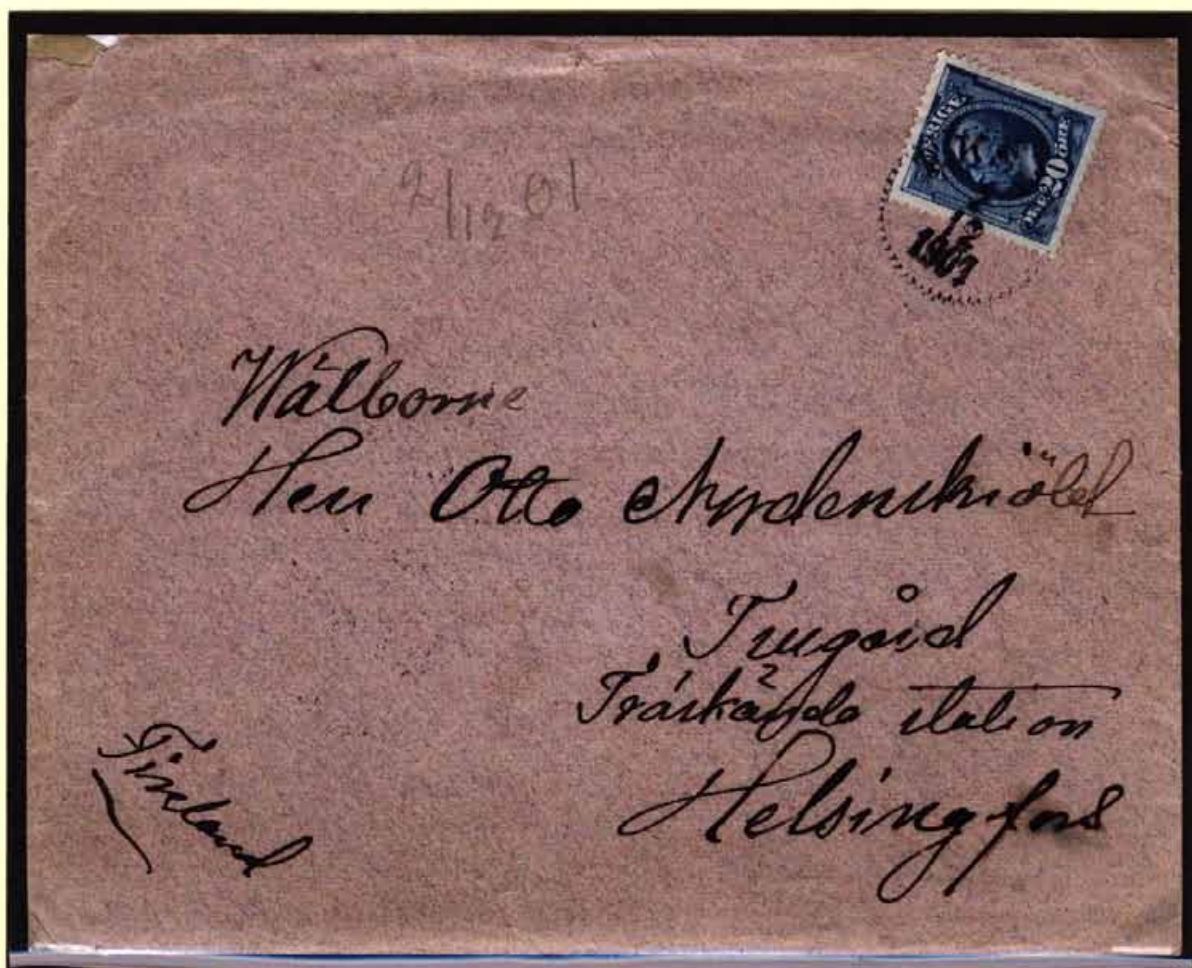 SVERIGE
20 ÖRE
1901
2/12 01
Wälborne
Herr Otto Nordenskiöld
Frugård
Träskända station
Helsingfors
Finland